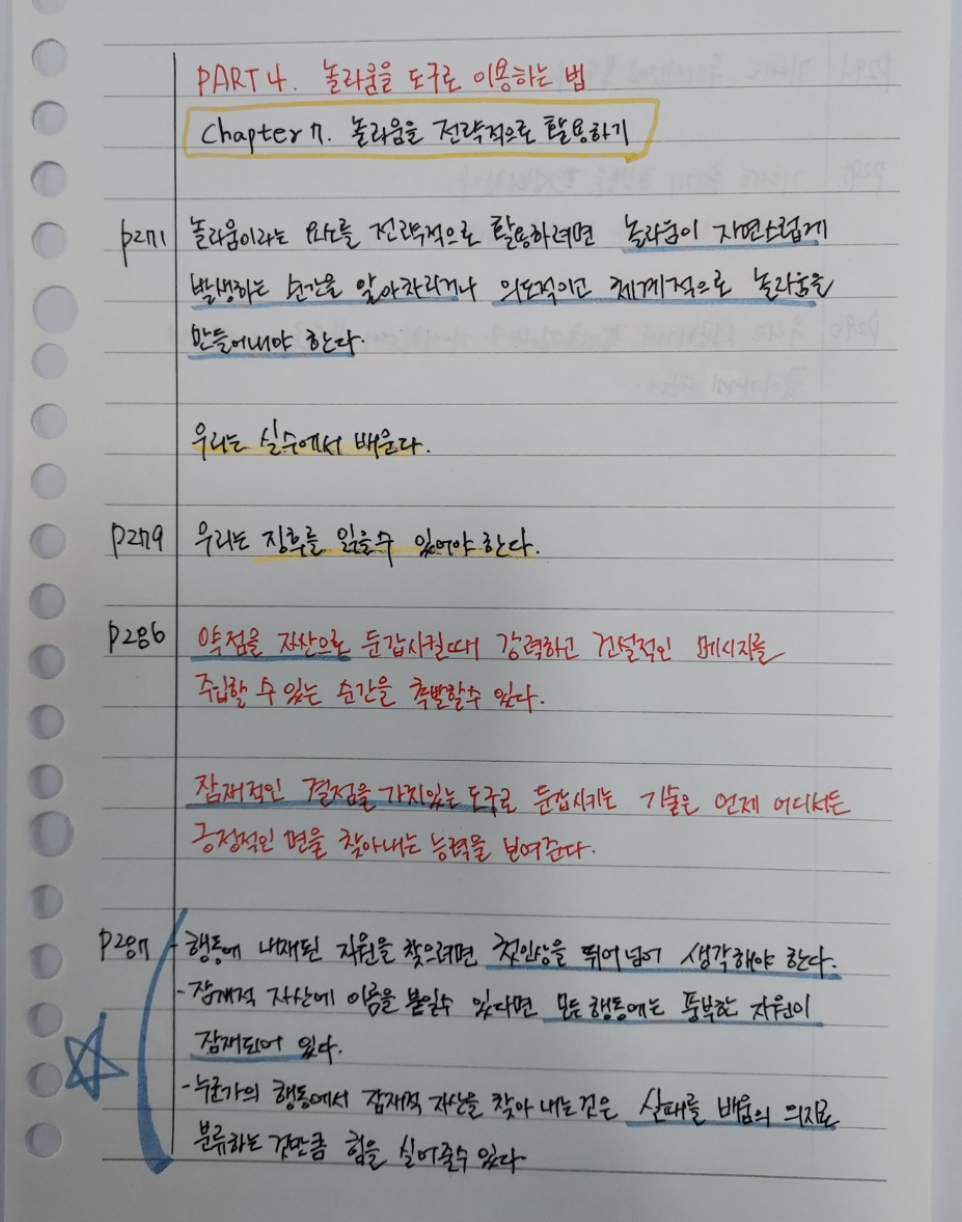 PART 4. 놀라움을 도구로 이용하는 법
Chapter 7. 놀라움을 전략적으로 활용하기
p271 놀라움이라는 요소를 전략적으로 활용하려면 놀라움이 자연스럽게
발생하는 순간을 알아차리거나 의도적이고 체계적으로 놀라움을
만들어내야 한다.
우리는 실수에서 배운다.
p279 우리는 징후를 읽을수 있어야 한다.
p286 약점을 자산으로 둔갑시킬때 강력하고 건설적인 메시지를
주입할 수 있는 순간을 촉발할수 있다.
잠재적인 결점을 가치있는 도구로 둔갑시키는 기술은 언제 어디서든
긍정적인 면을 찾아내는 능력을 보여준다.
p287 - 행동에 내재된 자원을 찾으려면 첫인상을 뛰어 넘어 생각해야 한다.
- 잠재적 자산에 이름을 붙일수 있다면 모든 행동에는 풍부한 자원이
잠재되어 있다.
- 누군가의 행동에서 잠재적 자산을 찾아 내는것은 실패를 배움의 의지로
분류하는 것만큼 힘을 실어줄수 있다